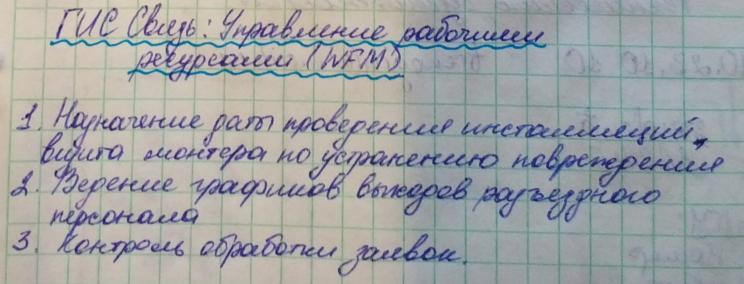 ГИС Связь: Управление рабочими
ресурсами (WFM)
1. Назначение даты проведения инсталляций,
визита монтера по устранению повреждения
2. Ведение графиков выходов разъездного
персонала
3. Контроль обработки заявок.